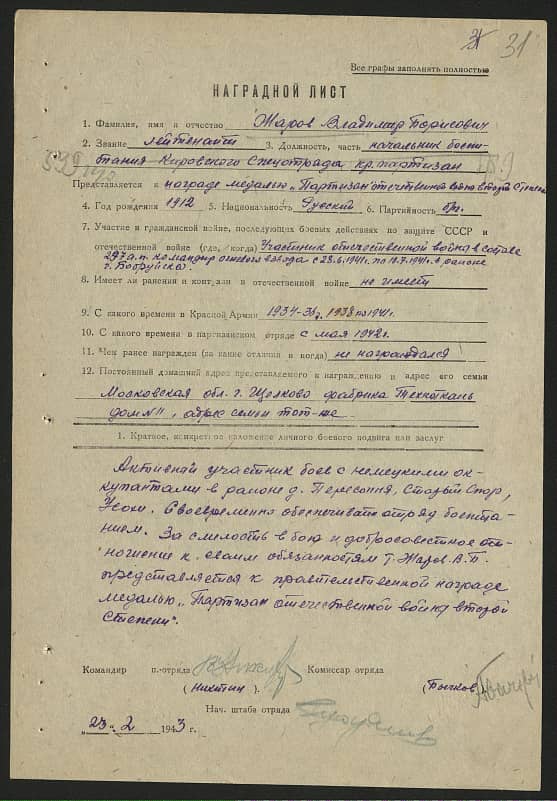 31
Все графы заполнять полностью
НАГРАДНОЙ ЛИСТ
1. Фамилия, имя и отчество Жаров Владимир Борисович
2. Звание лейтенант 3. Должность, часть начальник боепи-
тания Кировского Спецотряда кр. партизан
Представляется к награде медалью „Партизан отечественной войны второй степени
4. Год рождения 1912 5. Национальность Русский 6. Партийность б/п.
7. Участие в гражданской войне, последующих боевых действиях по защите СССР и
отечественной войне (где, когда) Участник отечественной войны в составе
297 а.п. командир огневого взвода с 28.6.1941г. по 10.7.1941г. в районе
г. Бобруйска.
8. Имеет ли ранения и контузии в отечественной войне не имеет
9. С какого времени в Красной Армии 1934-35г, 1938 по 1941г.
10. С какого времени в партизанском отряде с мая 1942г.
11. Чем ранее награжден (за какие отличия и когда) не награждался
12. Постоянный домашний адрес представляемого к награждению и адрес его семьи
Московская обл. г. Щелково фабрика Техноткань
дом № 11, адрес семьи тот-же
1. Краткое, конкретное изложение личного боевого подвига или заслуг
Активный участник боев с немецкими ок-
купантами в районе д. Пересопня, Старый Спор,
Своевременно обеспечивать отряд боепита-
нием. За смелость в бою и добросовестное от-
ношение к своим обязанностям т. Жаров В.Б.
представляется к правительственной награде
медалью „Партизан отечественной войны второй
степени".
Командир п.-отряда Комиссар отряда
(Никитин ). (Бычков)
Нач. штаба отряда
„23" 2 1943 г.